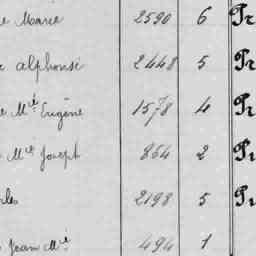 e Marie 2590 6 Pr
e alphonse 2448 5 Pr
e Mie Eugène 1578 4 Pr
Mie Joseph 864 2 Pr
rles 2198 5 Pr
Jean Mie 494 1